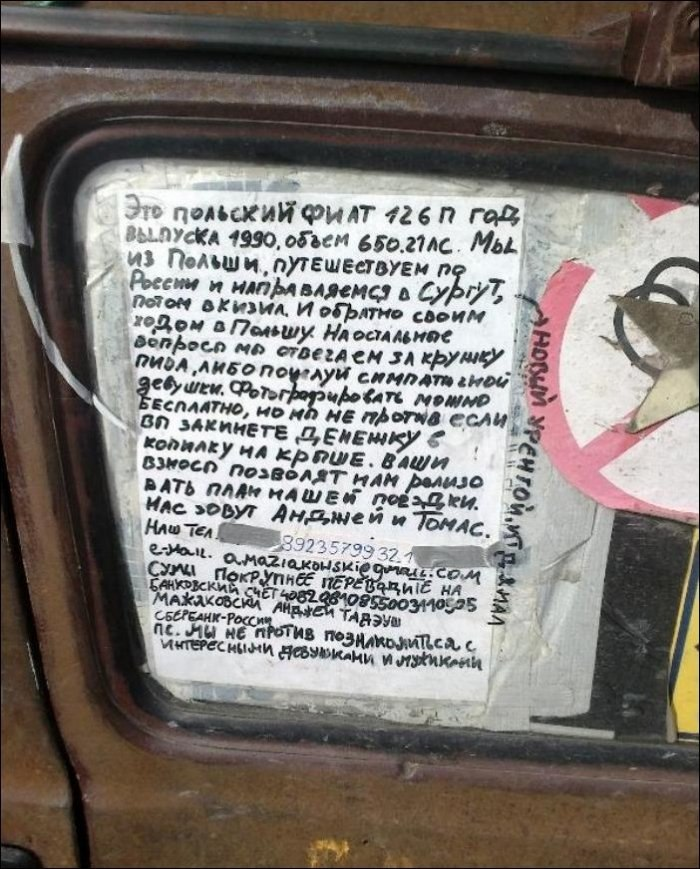 Это польский фиат 126п год
выпуска 1990, объем 650.21лс. Мы
из Польши, путешествуем по
России и направляемся в Сургут,
потом в Кизил. И обратно своим
ходом в Польшу. На остальные
вопросы мы отвечаем за кружку
пива, либо поцелуй симпатичной
девушки. Фотографировать можно
бесплатно, но мы не против если
вы закинете денежку в
копилку на крыше. Ваши
взносы позволят нам реализо
вать план нашей поездки.
Нас зовут Анджей и Томас.
Наш тел. 89235799321
e-mail. amaziakowski@gmail.com
Сумы покрупнее переводите на
банковский счет 40820810855003110525
Мажяковски Анджей Тадэуш
Сбербанк-России
ПС. Мы не против познакомиться с
интересными девушками и мужиками
Новый Уренгой,